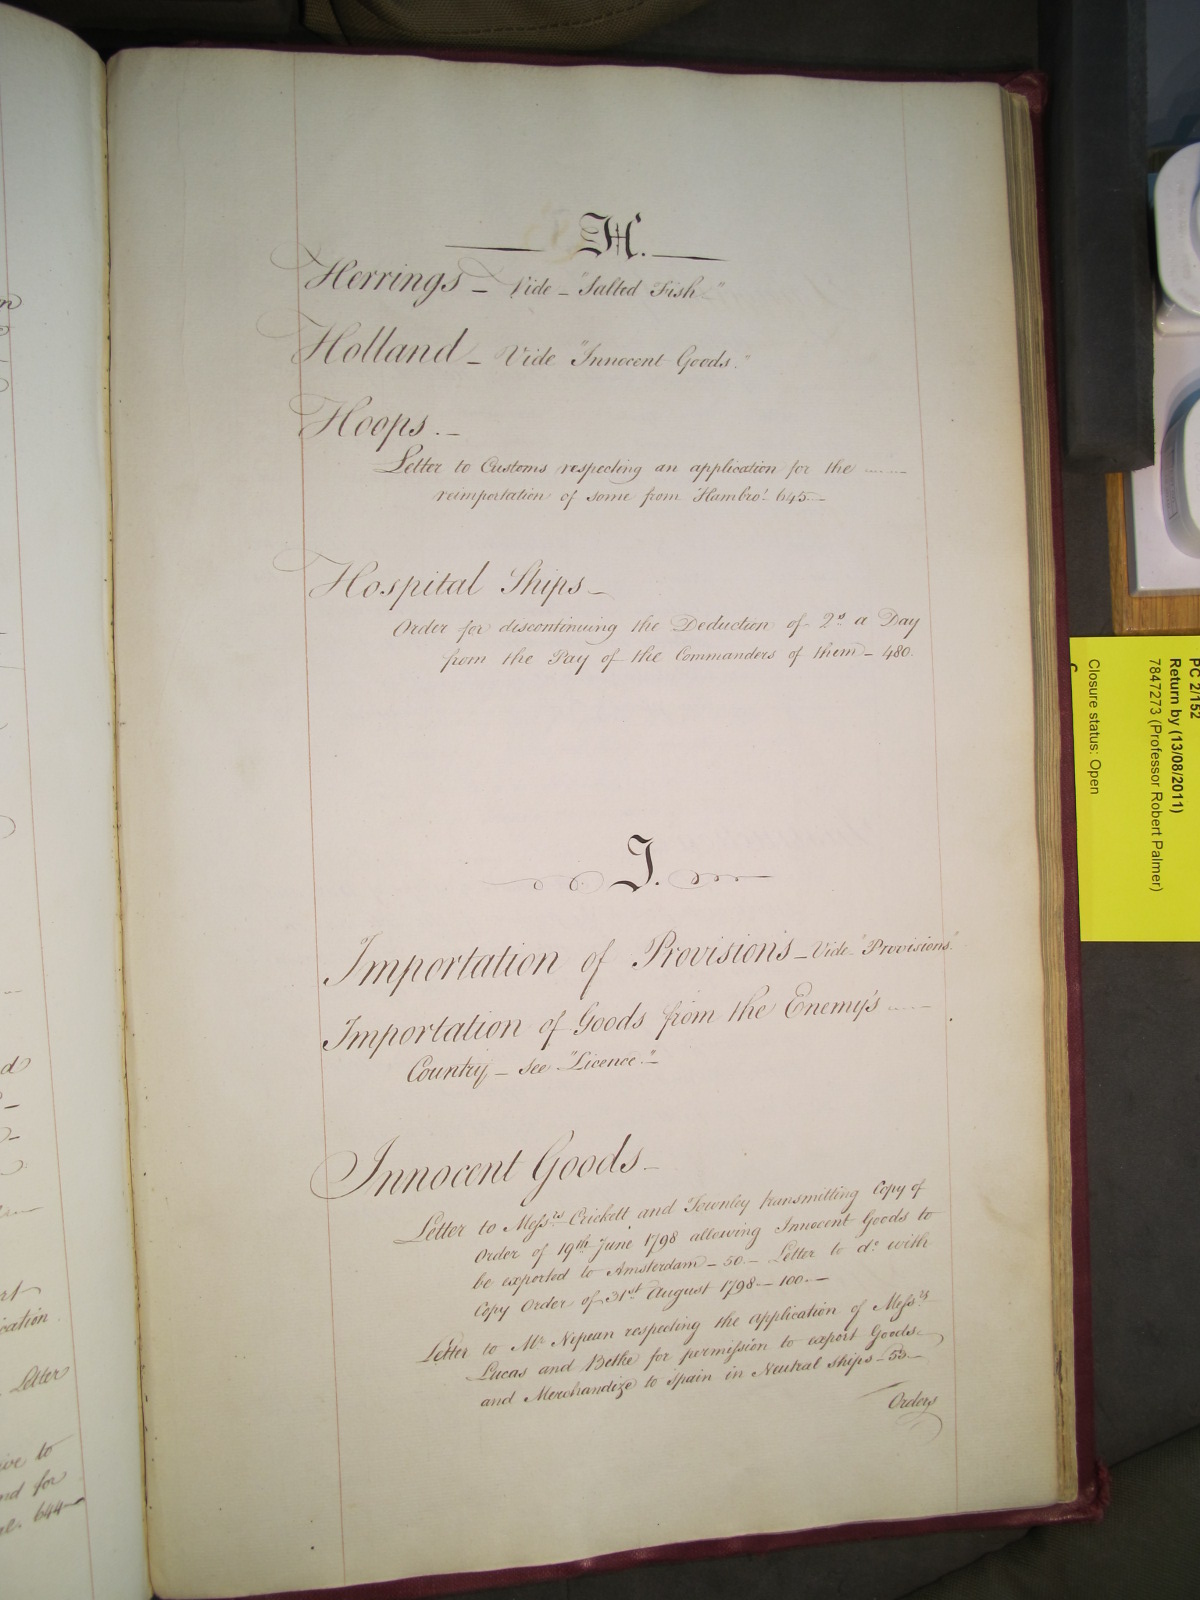 H.
Herrings – Vide – "Salted Fish"
Holland – Vide "Innocent Goods."
Hoops. –
Letter to Customs respecting an application for the
reimportation of some from Hambro' 645 –
Hospital Ships –
Order for discontinuing the Deduction of 2s a Day
from the Pay of the Commanders of them – 480.
I.
Importation of Provisions – Vide "Provisions."
Importation of Goods from the Enemy's
Country – See "Licence." –
Innocent Goods –
Letter to Messrs Crickett and Townley transmitting Copy of
Order of 19th June 1798 allowing Innocent Goods to
be exported to Amsterdam – 50. – Letter to do with
Copy Order of 31st August 1798 – 100. –
Letter to Mr Nepean respecting the application of Messrs
Lucas and Bethe for permission to export Goods
and Merchandize to Spain in Neutral Ships – 53 –
Orders
cation
Letter
ive to
nd for
644
PC 2/152
Return by (13/08/2011)
7847273 (Professor Robert Palmer)
Closure status: Open